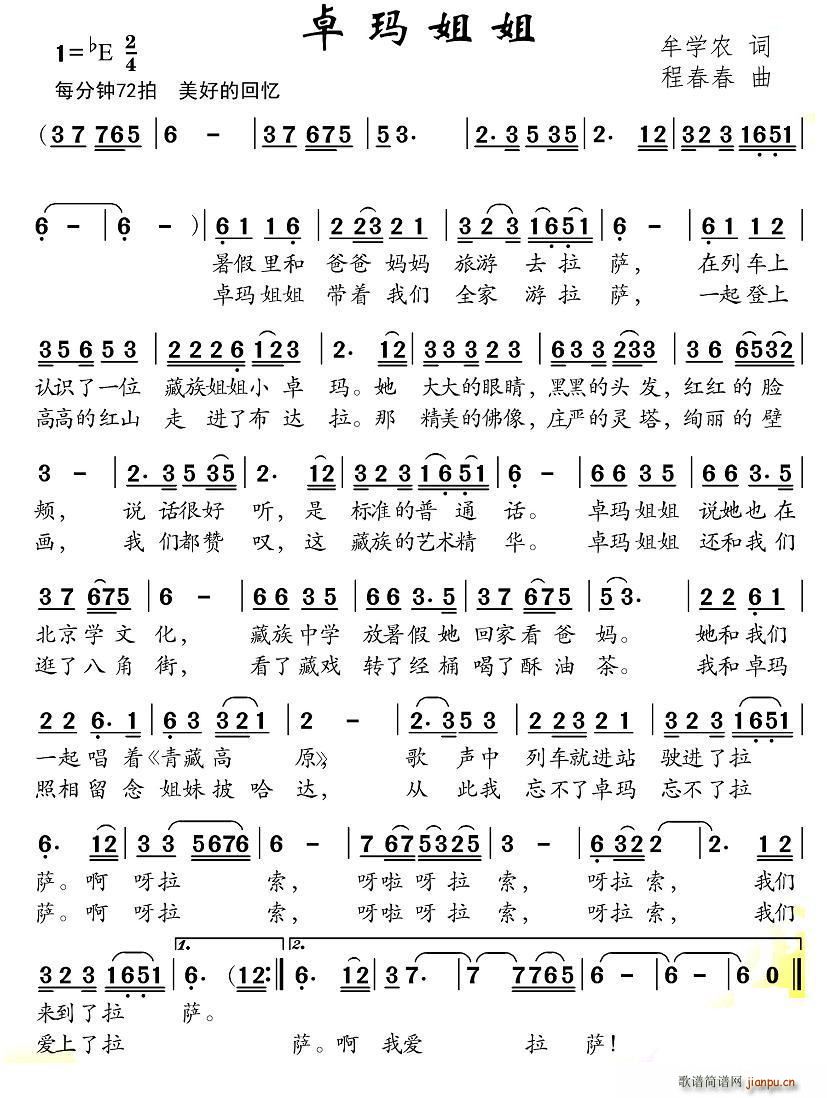 卓玛姐姐
1=♭E 2/4
牟学农 词
程春春 曲
每分钟72拍 美好的回忆
(3 7 7765 | 6 - | 3 7 675 | 5 3. | 2. 3 5 35 | 2. 12 | 323 1651 |
6 - | 6 - ) | 61 16 | 2 23 21 | 323 1651 | 6 - | 61 12 |
暑假里和 爸爸妈妈 旅游 去拉 萨, 在列车上
卓玛姐姐 带着我们 全家 游拉 萨, 一起登上
356 53 | 2226 123 | 2. 12 | 333 23 | 633 233 | 36 6532 |
认识了一位 藏族姐姐小卓 玛。她 大大的眼睛, 黑黑的头发, 红红的脸
高高的红山 走进了布达 拉。那 精美的佛像, 庄严的灵塔, 绚丽的壁
3 - | 2. 3 5 35 | 2. 12 | 323 1651 | 6 - | 66 35 | 66 3. 5 |
颊, 说话很好 听, 是 标准的普通 话。 卓玛姐姐 说她也在
画, 我们都赞 叹, 这 藏族的艺术精 华。 卓玛姐姐 还和我们
37 675 | 6 - | 66 35 | 66 3. 5 | 37 675 | 5 3. | 22 61 |
北京学文 化, 藏族中学 放暑假她 回家看爸 妈。 她和我们
逛了八角 街, 看了藏戏 转了经桶 喝了酥油 茶。 我和卓玛
22 6. 1 | 63 321 | 2 - | 2. 3 5 3 | 223 21 | 323 1651 |
一起唱着《青藏高 原》, 歌声中 列车就进站 驶进了拉
照相留念 姐妹披哈 达, 从此我 忘不了卓玛 忘不了拉
6. 12 | 33 5676 | 6 - | 7 67 5325 | 3 - | 6 32 2 | 2. 12 |
萨。啊 呀拉 索, 呀啦呀拉 索, 呀拉索, 我们
萨。啊 呀拉 索, 呀啦呀拉 索, 呀拉索, 我们
1. 2.
323 1651 | 6. (12 :‖ 6. 12 | 3 7. | 7 7765 | 6 - | 6 - | 6 0 ‖
来到了拉 萨。
爱上了拉 萨。啊 我爱 拉 萨!
歌谱简谱网 jianpu.cn